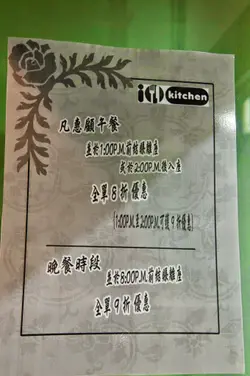 kitchen
凡惠顧午餐
並於1:00P.M.前結賬離座
或於2:00P.M.後入座
全單8折優惠
(1:00P.M.至2:00P.M.可獲9折優惠)
晚餐時段
並於8:00P.M.前結賬離座
全單9折優惠